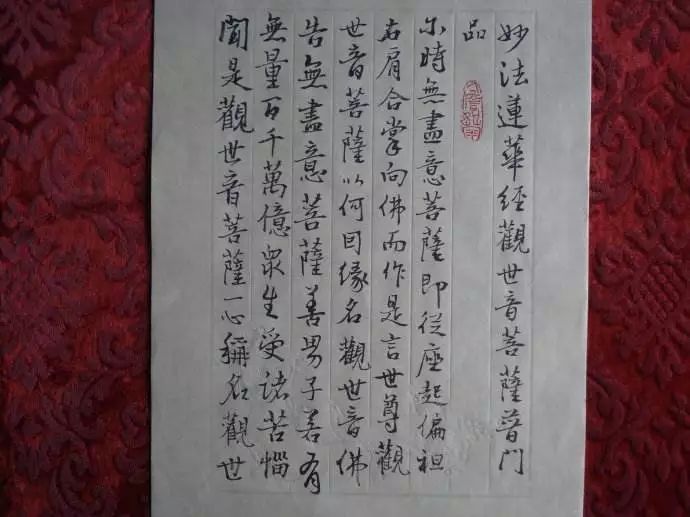 妙法蓮華經觀世音菩薩普門
品
尔時無盡意菩薩即從座起偏袒
右肩合掌向佛而作是言世尊觀
世音菩薩以何因緣名觀世音佛
告無盡意菩薩善男子若有
無量百千萬億眾生受諸苦惱
聞是觀世音菩薩一心稱名觀世